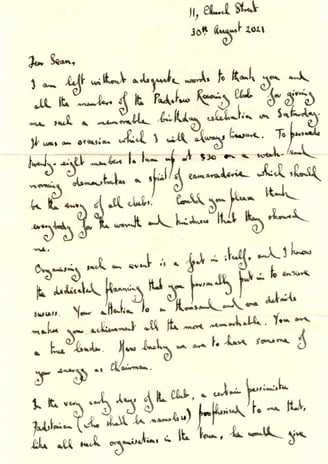 11, Church Street
30th August 2021
Dear Sean,
I am left without adequate words to thank you and
all the members of the Padstow Rowing Club for giving
me such a memorable birthday celebration on Saturday.
It was an occasion which I will always treasure. To persuade
twenty-eight members to turn up at 8.30 on a week-end
morning demonstrates a spirit of camaraderie which should
be the envy of all clubs. Could you please thank
everybody for the warmth and kindness that they showed
me.
Organising such an event is a feat in itself, and I know
the dedicated planning that you personally put in to ensure
success. Your attention to a thousand and one details
makes your achievement all the more remarkable. You are
a true leader. How lucky we are to have someone of
your energy as Chairman.
In the very early days of the Club, a certain pessimistic
Padstonian (who shall be nameless) prophesied to me that,
like all such organisations in the town, he would give